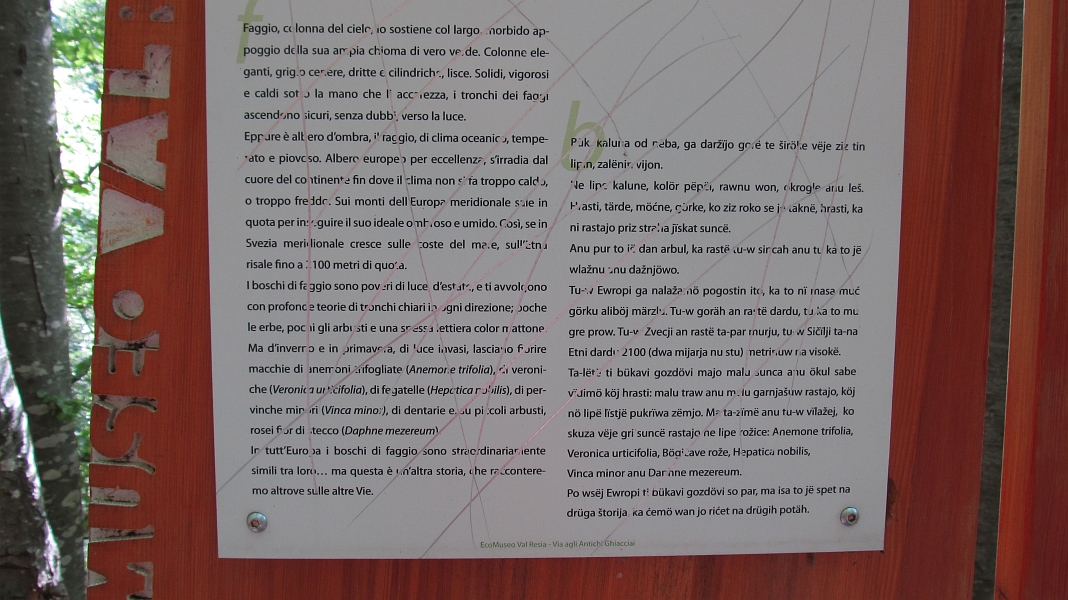 f
Faggio, colonna del cielo, lo sostiene col largo, morbido ap-
poggio della sua ampia chioma di vero verde. Colonne ele-
ganti, grigio cenere, dritte e cilindriche, lisce. Solidi, vigorosi
e caldi sotto la mano che li accarezza, i tronchi dei faggi
ascendono sicuri, senza dubbi, verso la luce.
Eppure è albero d'ombra, il faggio, di clima oceanico, tempe-
rato e piovoso. Albero europeo per eccellenza, s'irradia dal
cuore del continente fin dove il clima non si fa troppo caldo,
o troppo freddo. Sui monti dell'Europa meridionale sale in
quota per inseguire il suo ideale ombroso e umido. Così, se in
Svezia meridionale cresce sulle coste del mare, sull'Etna
risale fino a 2100 metri di quota.
I boschi di faggio sono poveri di luce, d'estate, e ti avvolgono
con profonde teorie di tronchi chiari in ogni direzione; poche
le erbe, pochi gli arbusti e una spessa lettiera color mattone.
Ma d'inverno e in primavera, di luce invasi, lasciano fiorire
macchie di anemoni trifogliate (Anemone trifolia), di veroni-
che (Veronica urticifolia), di fegatelle (Hepatica nobilis), di per-
vinche minori (Vinca minor), di dentarie e su piccoli arbusti,
rosei fior di stecco (Daphne mezereum).
In tutt'Europa i boschi di faggio sono straordinariamente
simili tra loro... ma questa è un'altra storia, che raccontere-
mo altrove sulle altre Vie.
b
Pük, kaluna od neba, ga daržïjo gorë te širöke vëje ziz tin
lipin, zalënin vijon.
Ne lipe kalune, kolör pëpëi, rawnu won, okrogle anu leš.
Hrasti, tärde, möćne, görke, ko ziz roko se je taknë, hrasti, ka
ni rastajo priz straha jïskat suncë.
Anu pur to jë dan arbul, ka rastë tu-w sincah anu tu ka to jë
wlažnu anu dažnjöwo.
Tu-w Ewropi ga nalažamö pogostin itö, ka to nï masa muć
görku aliböj märzlu. Tu-w goräh an rastë dardu, tu ka to mu
gre prow. Tu-w Žvecji an rastë ta-par murju, tu-w Sičïlji ta-na
Etni dardu 2100 (dwa mijarja nu stu) metrinuw na visokë.
Ta-lëtë ti bükavi gozdövi majo malu sunca anu ökul sabe
vïdimö köj hrasti: malu traw anu malu garnjašuw rastajo, köj
nö lipë lïstjë pukrïwa zëmjo. Ma ta-zïmë anu tu-w vilažej, ko
skuza vëje gri suncë rastajo ne lipe rožice: Anemone trifolia,
Veronica urticifolia, Bögkave rože, Hepatica nobilis,
Vinca minor anu Daphne mezereum.
Po wsëj Ewropi ti bükavi gozdövi so par, ma isa to jë spet na
drüga štorija, ka ćemö wan jo rićet na drügih potäh.
EcoMuseo Val Resia - Via agli Antichi Ghiacciai